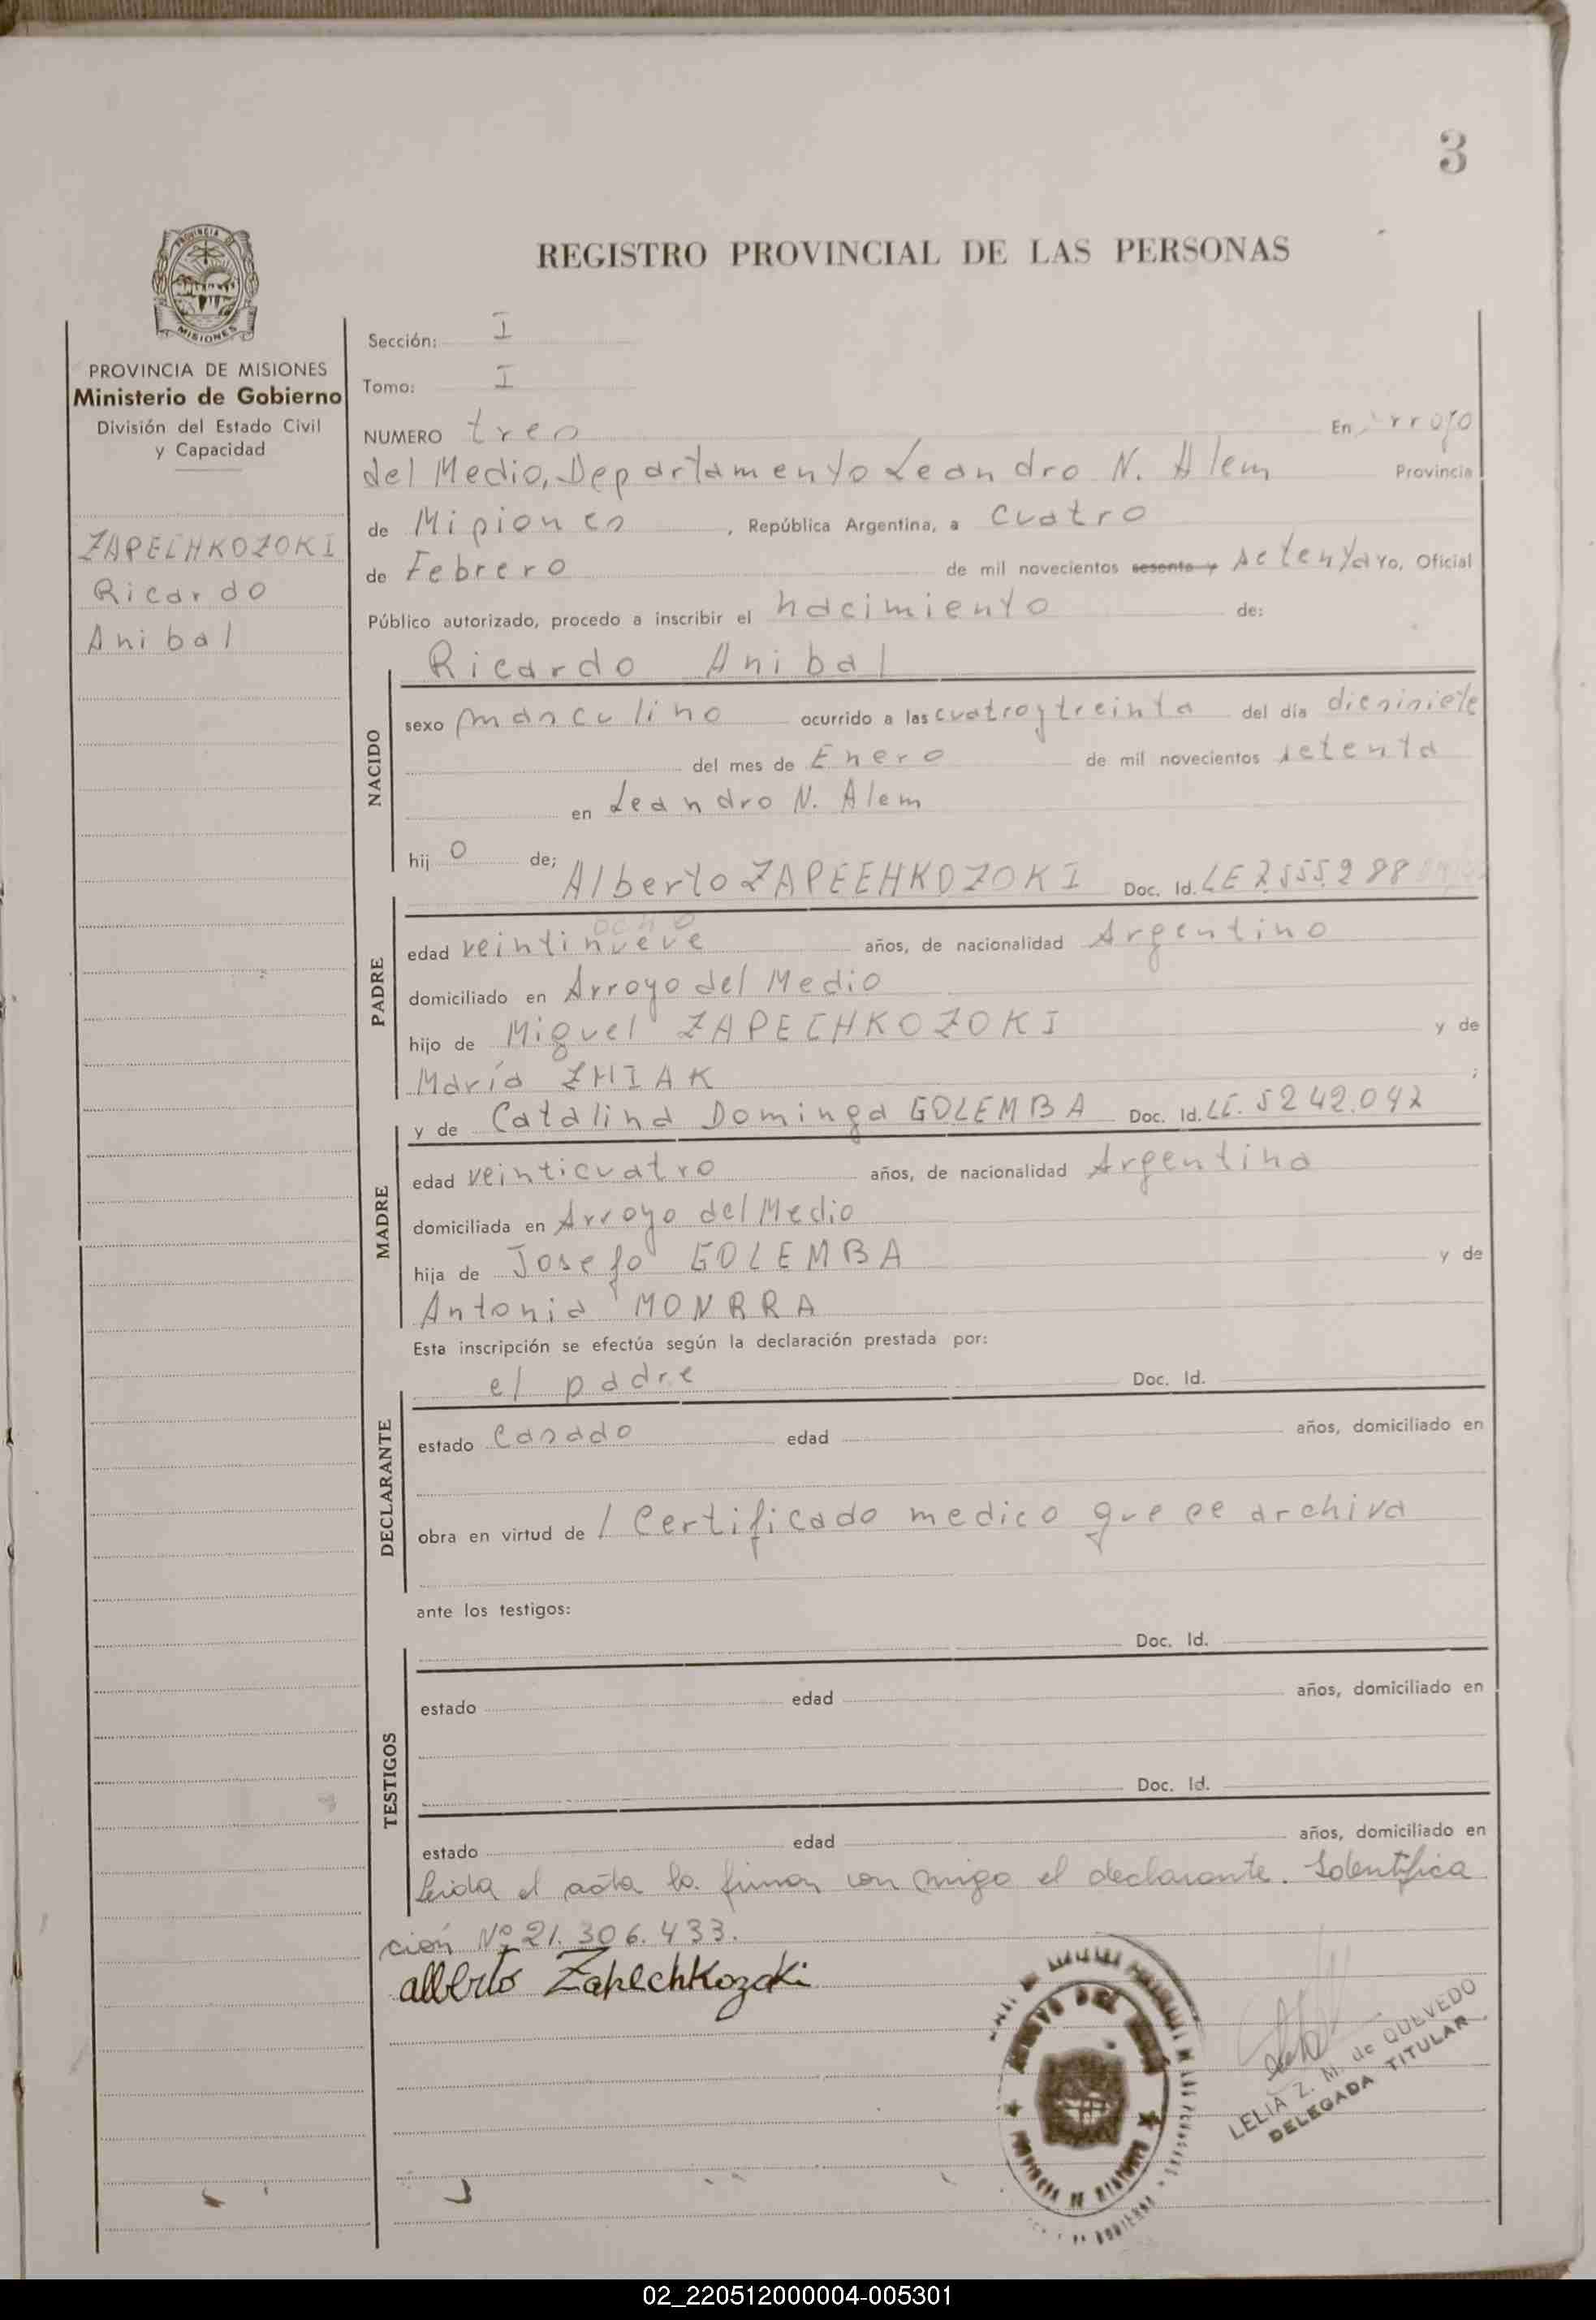 3
PROVINCIA DE
MISIONES
REGISTRO PROVINCIAL DE LAS PERSONAS
PROVINCIA DE MISIONES
Ministerio de Gobierno
División del Estado Civil
y Capacidad
ZAPECHKOZOKI
Ricardo
Anibal
Sección: I
Tomo: I
NUMERO tres En Arroyo
del Medio, Departamento Leandro N. Alem Provincia
de Misiones, República Argentina, a cuatro
de Febrero de mil novecientos sesenta y setenta Yo, Oficial
Público autorizado, procedo a inscribir el nacimiento de:
Ricardo Anibal
NACIDO
sexo masculino ocurrido a las cuatro y treinta del día diesisiete
del mes de Enero de mil novecientos setenta
en Leandro N. Alem
hijo de; Alberto ZAPEEHKOZOKI Doc. Id. LE 7.555.288
PADRE
ocho
edad veintinueve años, de nacionalidad Argentino
domiciliado en Arroyo del Medio
hijo de Miguel ZAPECHKOZOKI y de
María ZMIAK ;
y de Catalina Dominga GOLEMBA Doc. Id. LC. 5242.042
MADRE
edad veinticuatro años, de nacionalidad Argentina
domiciliada en Arroyo del Medio
hija de Josefo GOLEMBA y de
Antonia MONRRA
Esta inscripción se efectúa según la declaración prestada por:
el padre Doc. Id.
DECLARANTE
estado Casado edad años, domiciliado en
obra en virtud de / Certificado medico que se archiva
ante los testigos:
Doc. Id.
TESTIGOS
estado edad años, domiciliado en
Doc. Id.
estado edad años, domiciliado en
leida el acta la firman con migo el declarante. Identifica
ción Nº 21.306.433.
alberto Zapechkozoki
ARROYO DEL MEDIO
PROVINCIA DE MISIONES
LELIA Z. M. de QUEVEDO
DELEGADA TITULAR
02_220512000004-005301